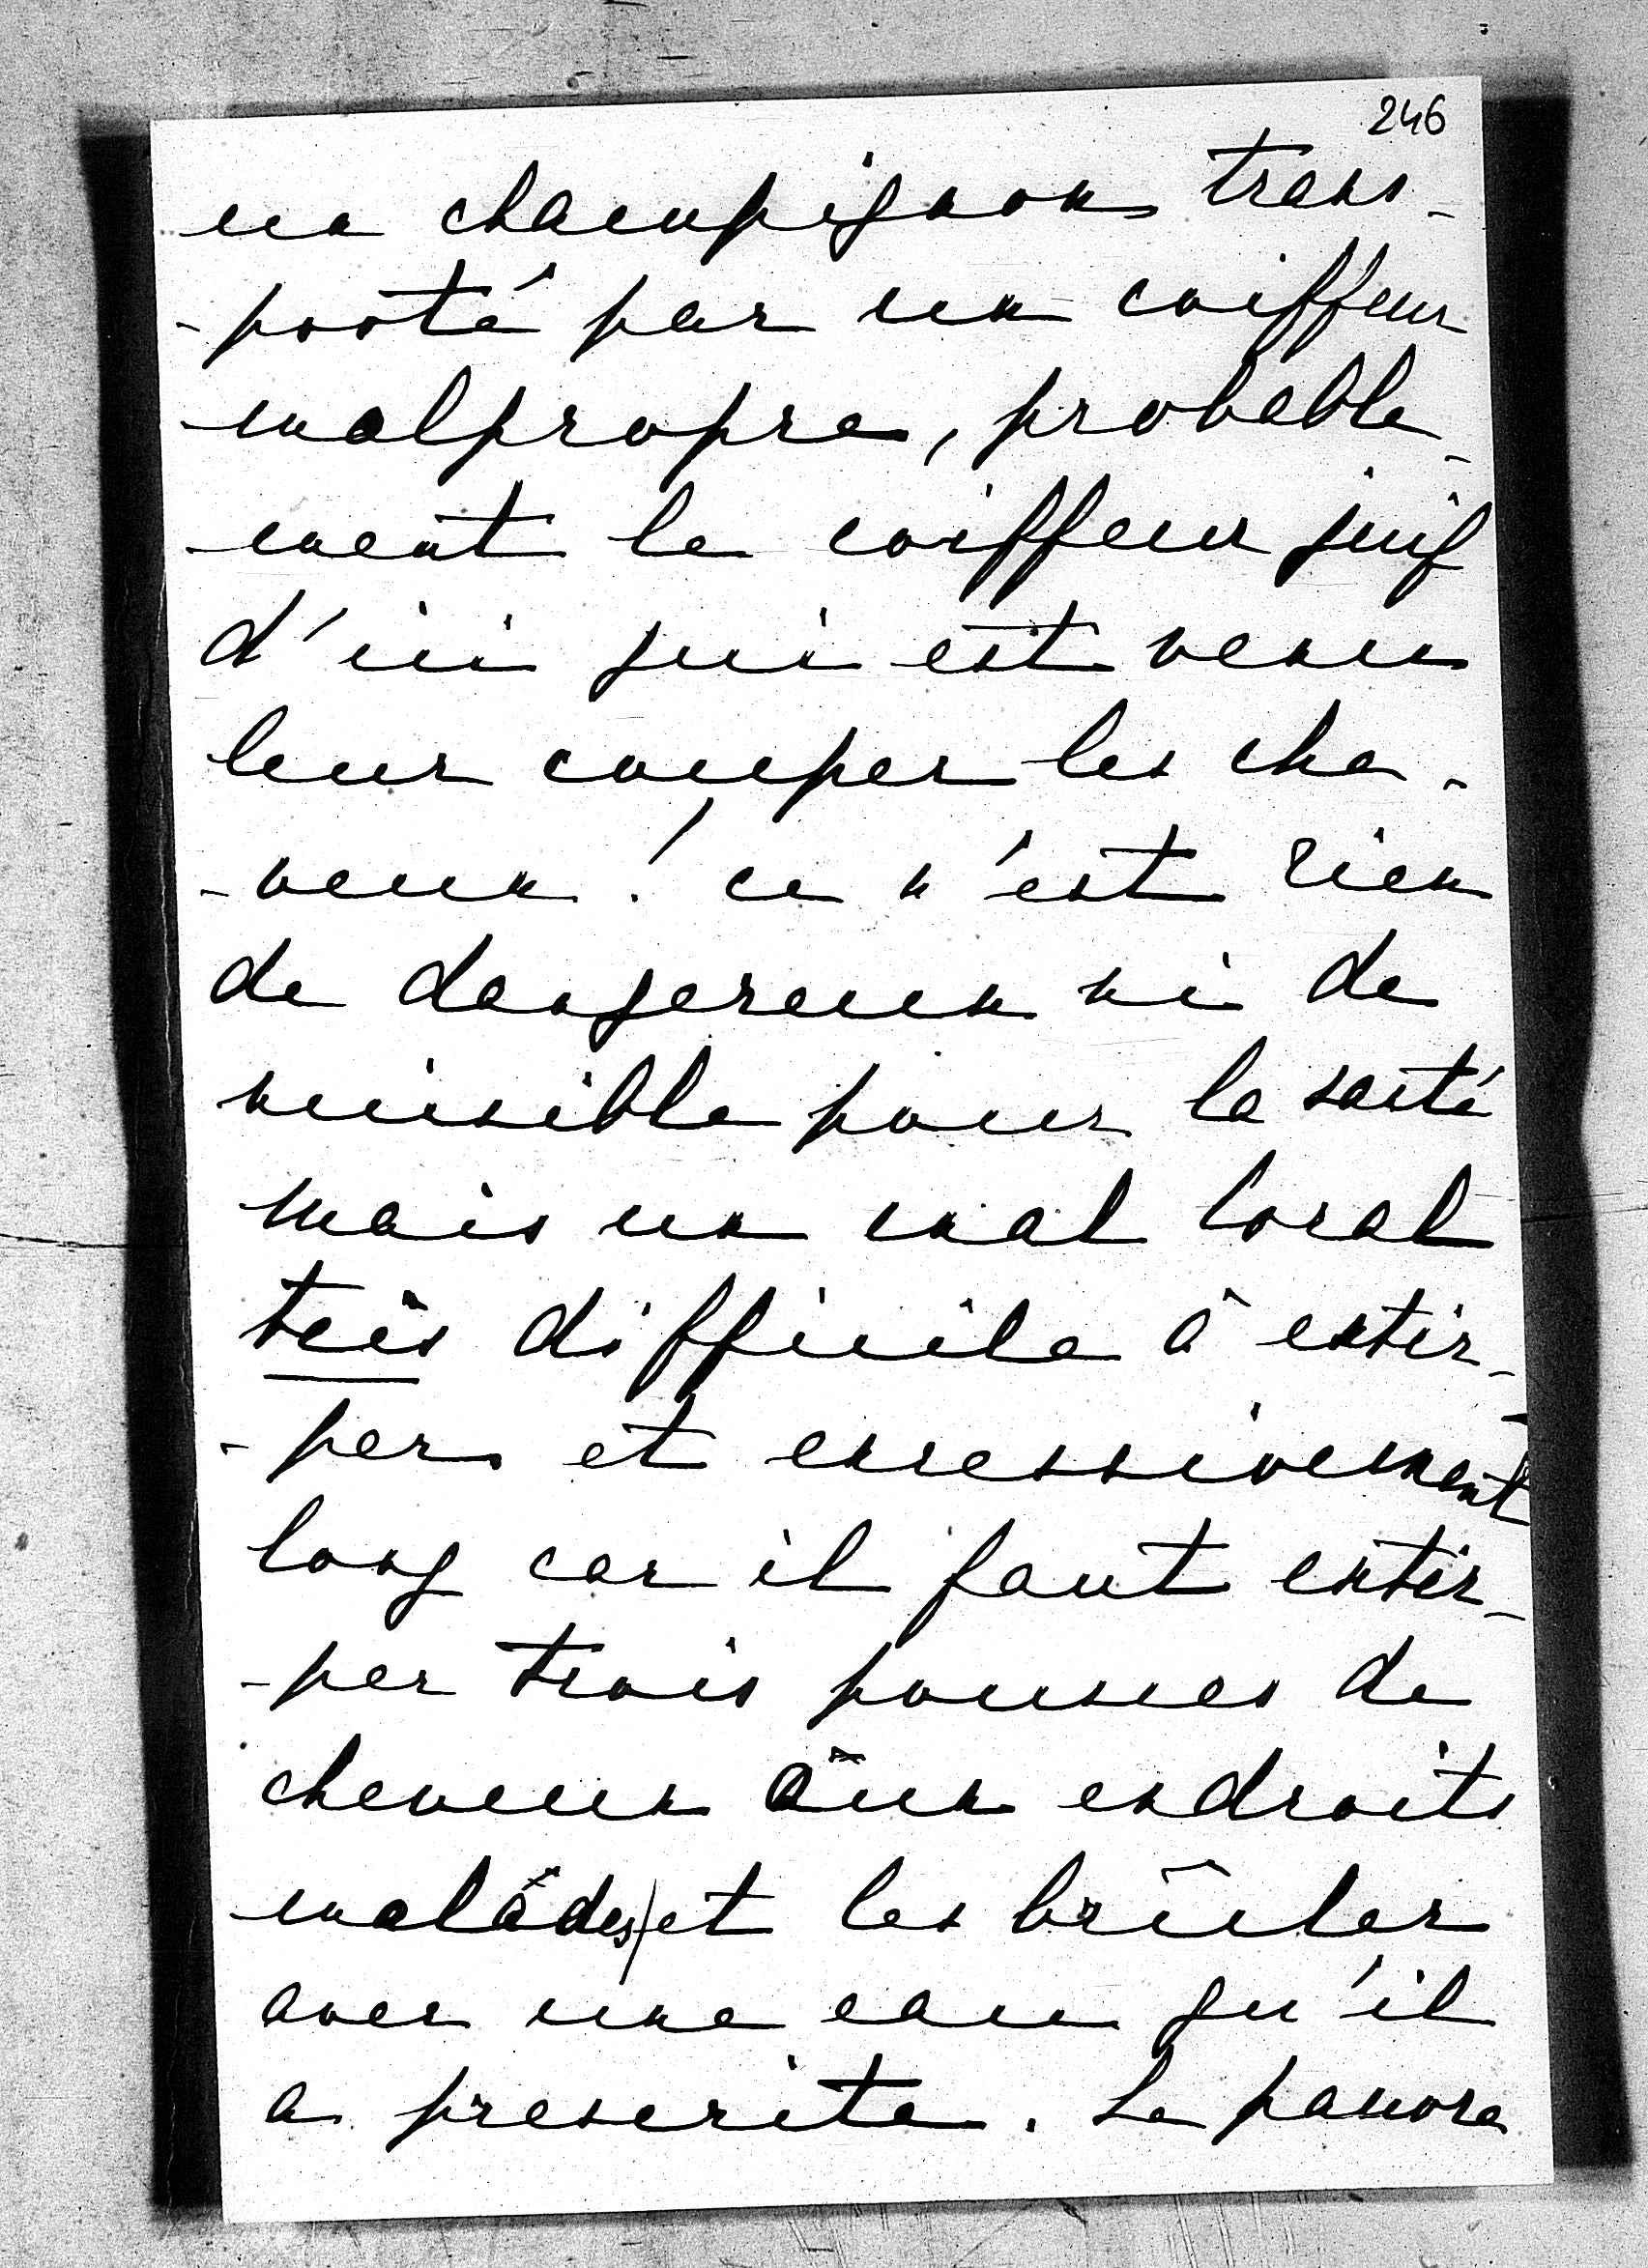 246
un champignon trans-
-porté par un coiffeur
malpropre, probable-
ment le coiffeur juif
d'ici qui est venu
leur couper les che-
-veux! ce n'est rien
de dangereux ni de
nuisible pour la santé
mais un mal local
très difficile à extir-
-per et excessivement
long car il faut extir-
-per trois pousses de
cheveux aux endroits
malades et les brûler
avec une eau qu'il
a prescrite. Le pauvre